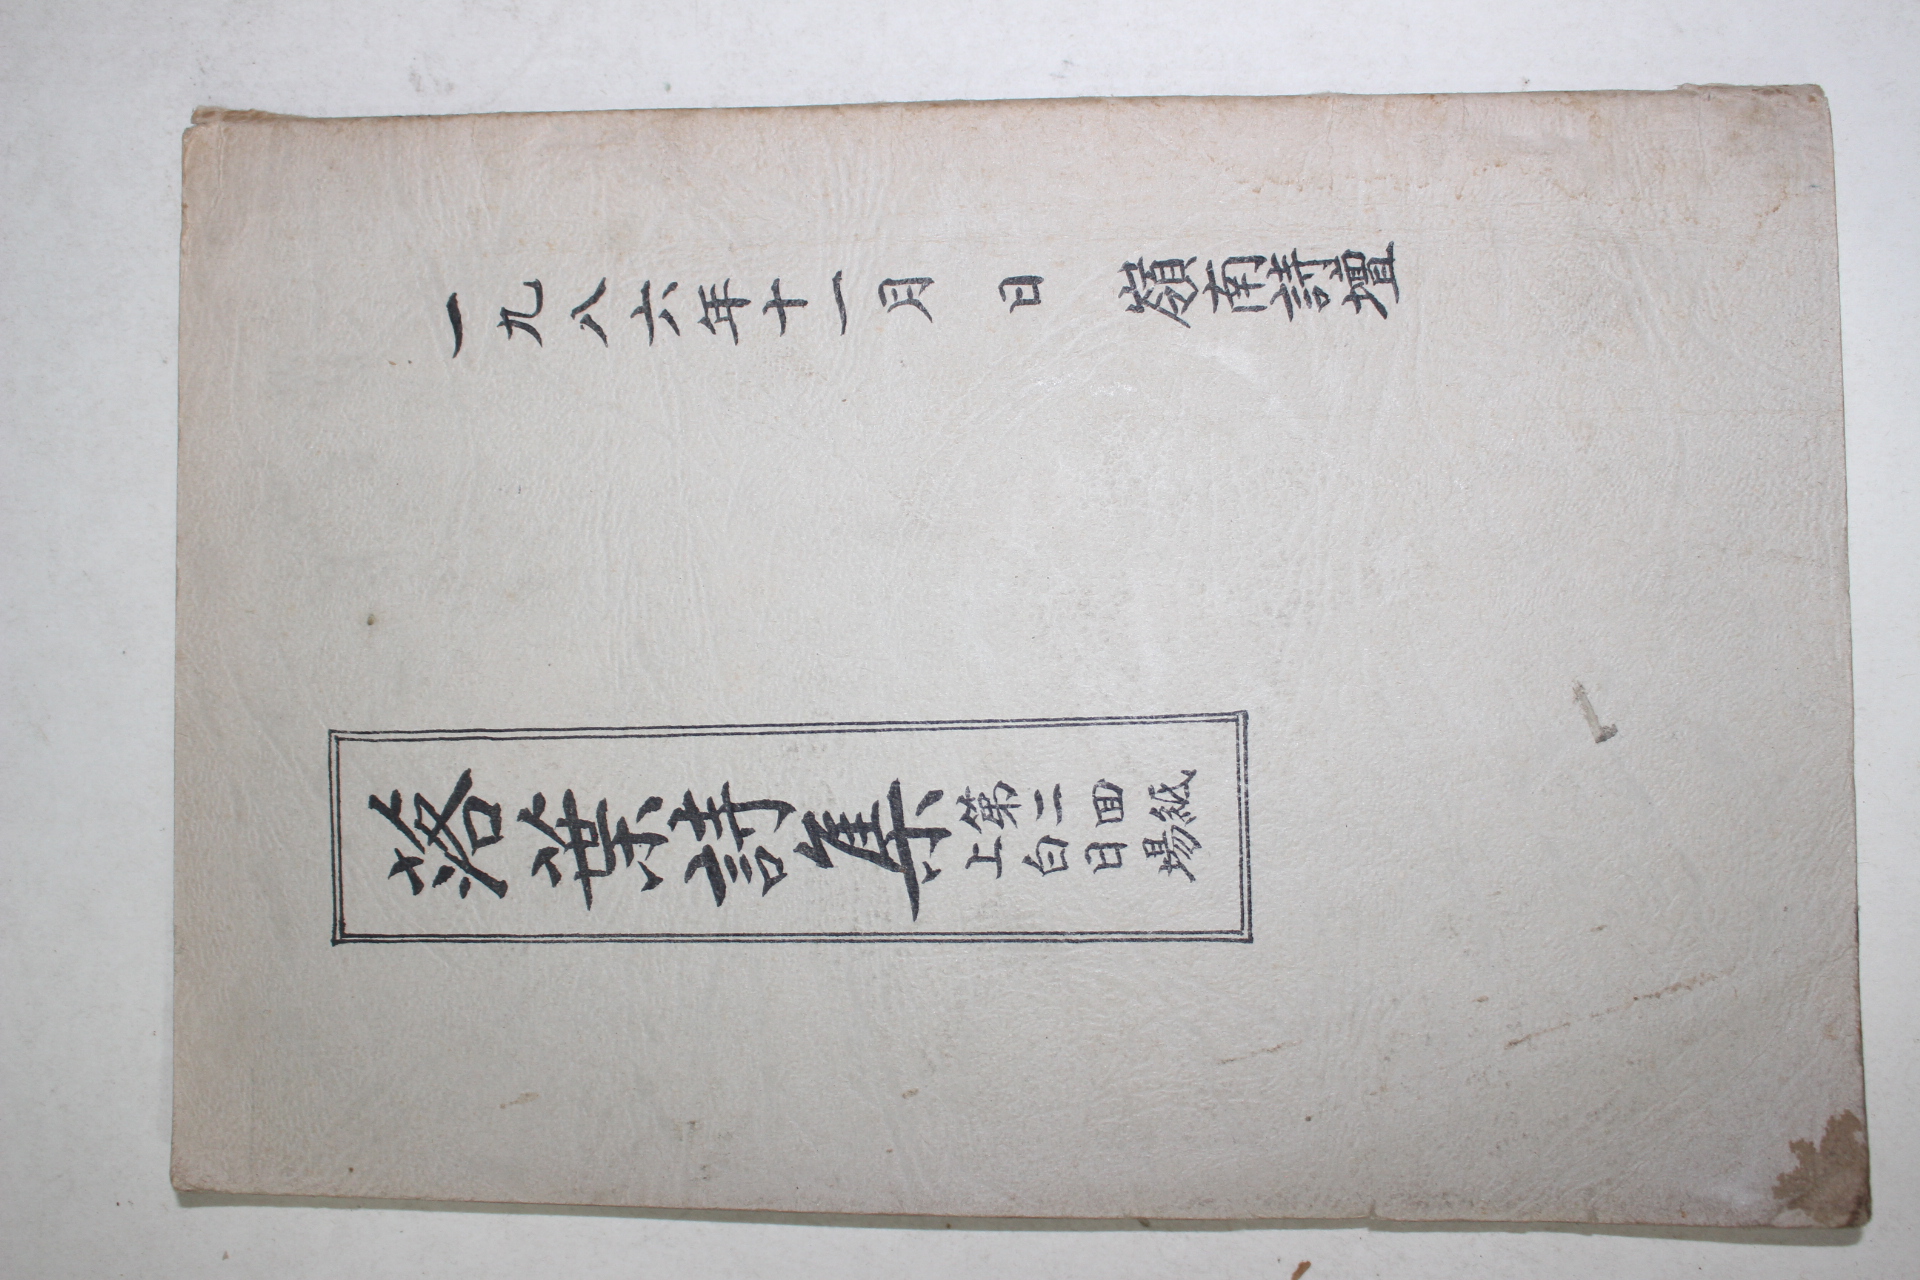 一九八六年十一月 日 嶺南詩壇
落葉詩集
第二回紙
上白日場